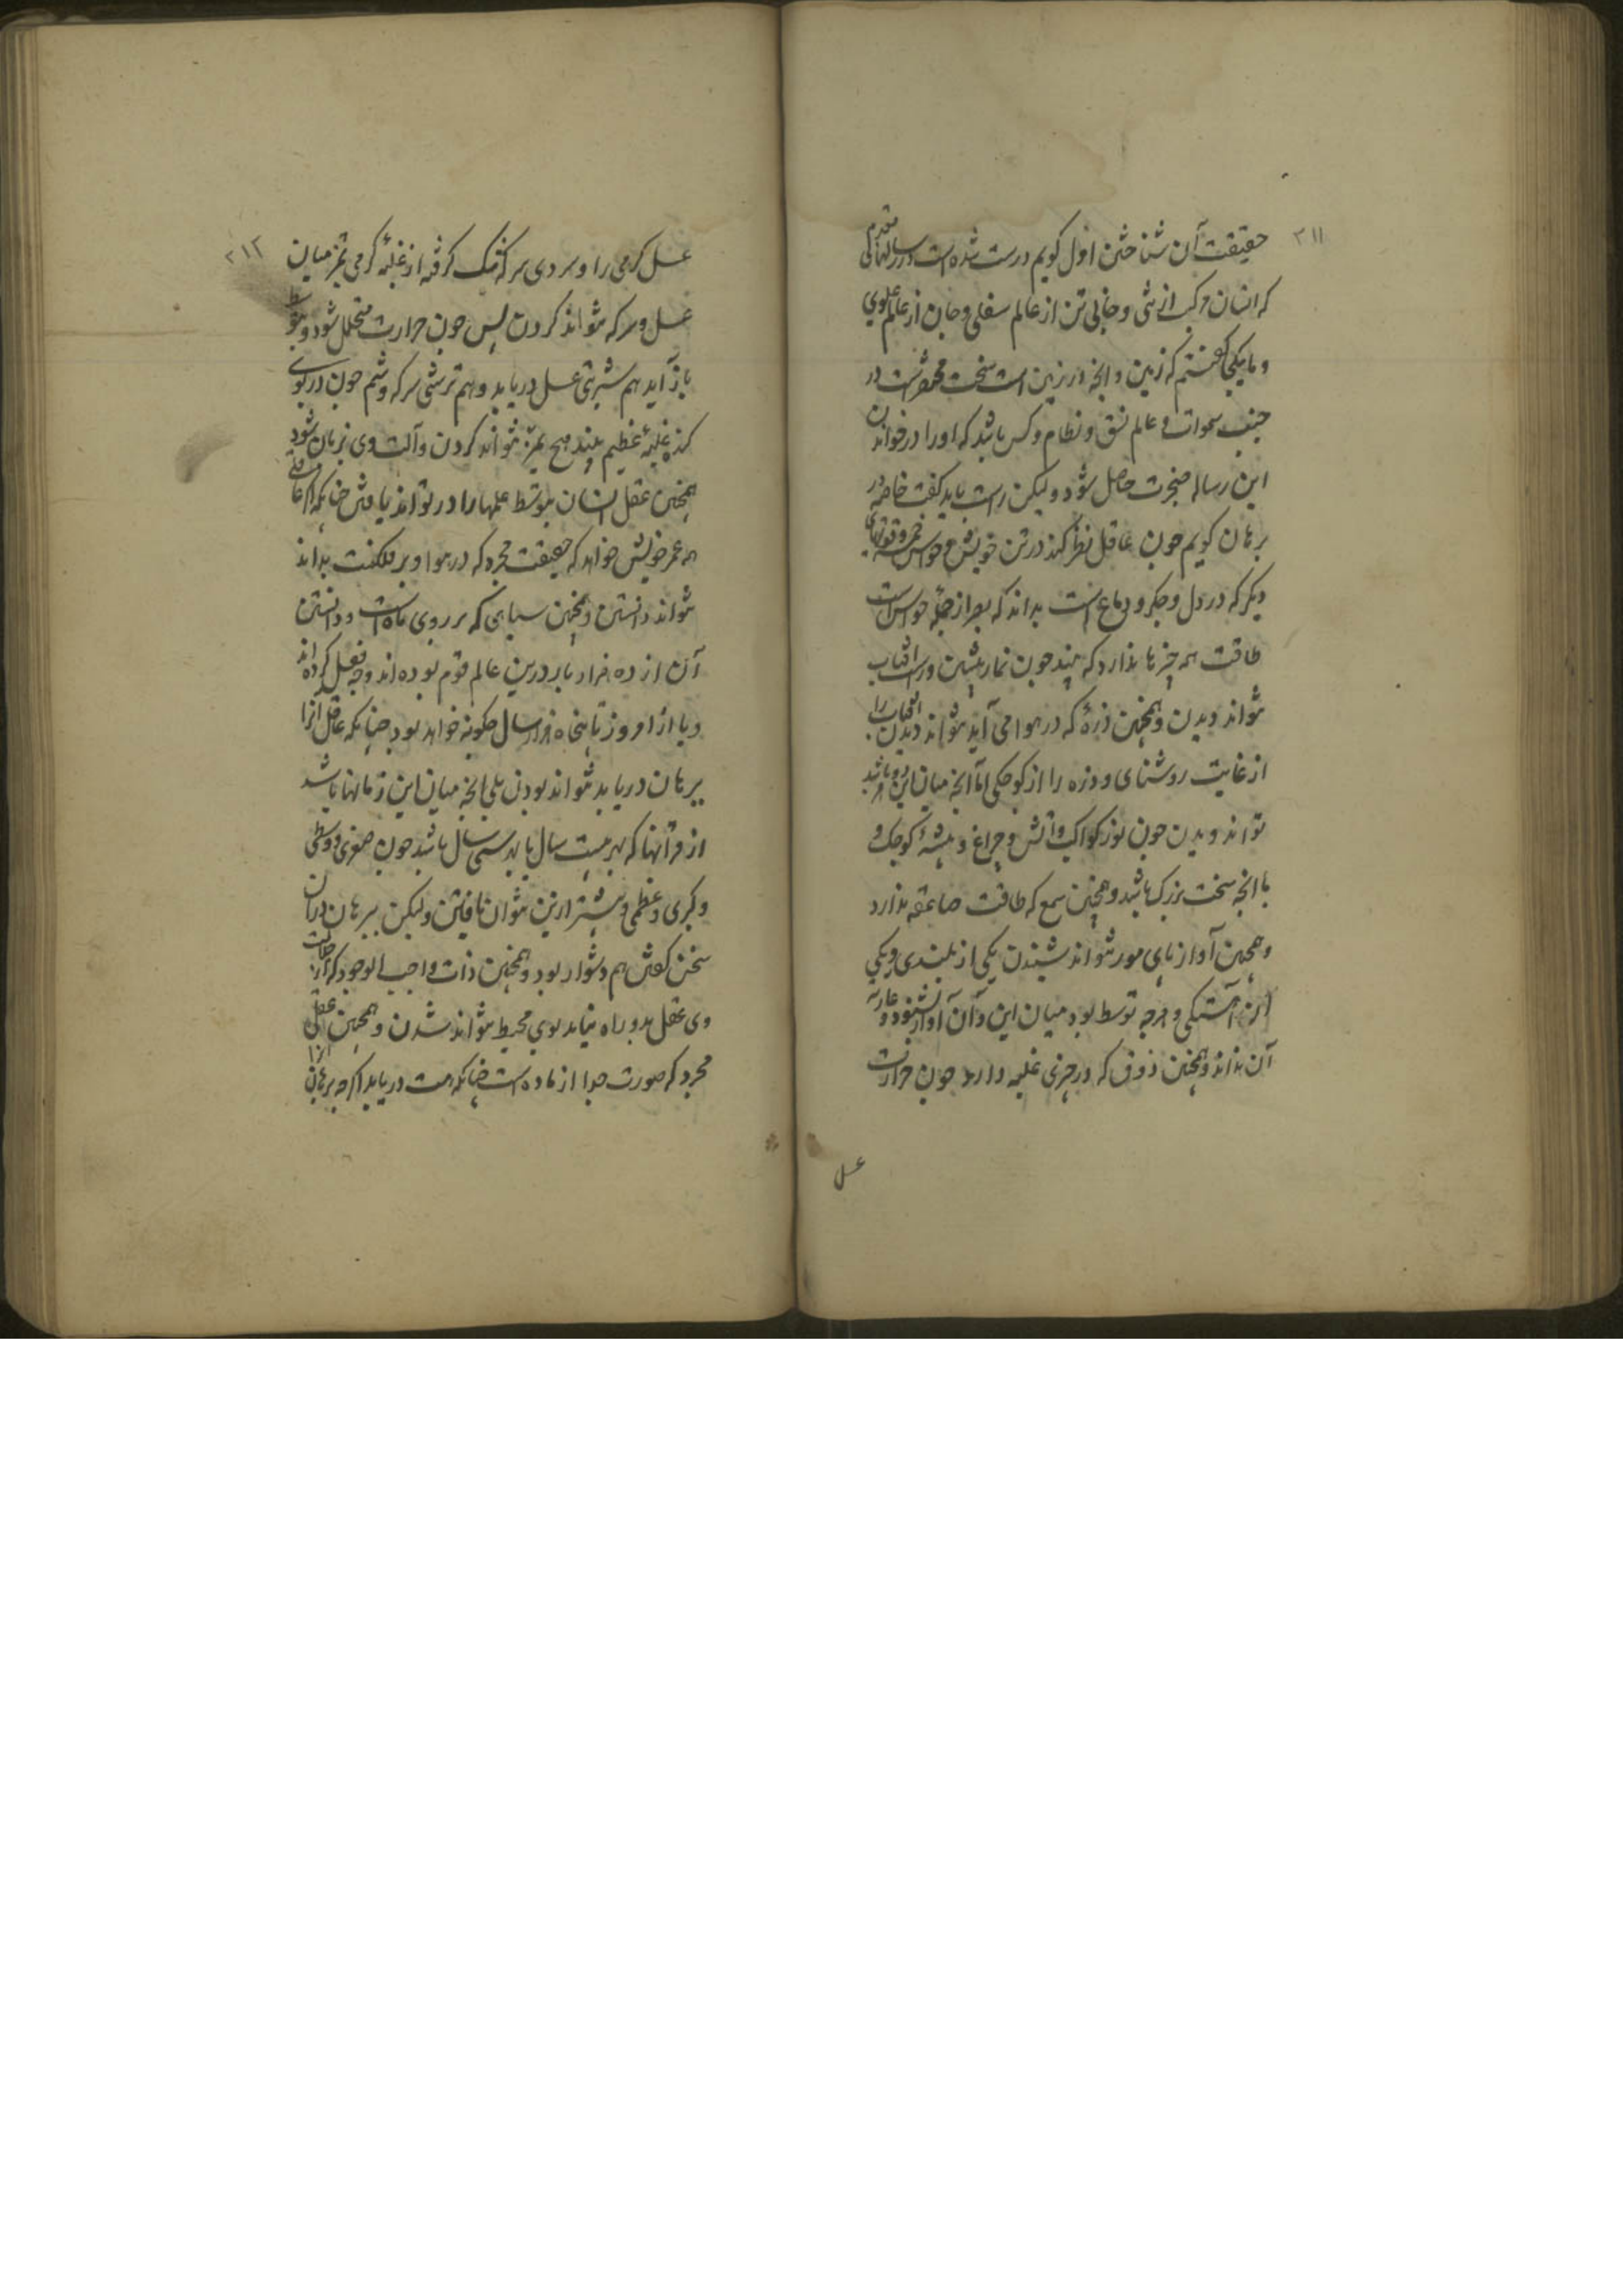 ۲۱۱
حقیقت آن شناختن اول کویم درست شده است در رسالهای متقدم
که انسان مرکب از تنی و جانی تن از عالم سفلی و جان از عالم علوی
و مایکی کفتیم که زمین و انچه در زمین است سخت مختصرست در
جنب سموات و عالم نسق و نظام و کس باشد که اورا در خواندن
این رساله ضجرت حاصل شود ولیکن راست باید کفت خاصه در
برهان کویم چون عاقل نظر کند در تن خویش و حواس خمسه و قوتهای
دیکر که در دل و جکر و دماغ است بداند که بصر از جمله حواس است
طاقت همه چیزها ندارد که بیند چون نماز پیشین در آفتاب
نتواند دیدن و همچنین ذره که در هوا می آید نتواند دیدن آفتاب را
از غایت روشنای و ذره را از کوچکی اما انچه میان این دو باشد
تواند دیدن چون نور کواکب و آتش و چراغ و پشه کوچک و
با انچه سخت بزرک باشد و همچنین سمع که طاقت صاعقه ندارد
و همچنین آواز پای مور نتواند شنیدن یکی از بلندی و یکی
از آهستکی و هرچه توسط بود میان این و آن آواز بشنود و
آن بداند و همچنین ذوق که در چیزی غلبه دارد چون حرارت
عسل
۲۱۲
عسل کرمی را و سردی سرکه نیک کرفته از غلبه کرمی تمیز میان
عسل و سرکه نتواند کردن پس چون حرارت متحلل شود و بتوسط
باز آید هم شیرینی عسل دریابد و هم ترشی سرکه و شم چون در بوی
کنده غلبه عظیم بیند هیچ تمیز نتواند کردن و آلت وی بزیان شود
همچنین عقل انسان بتوسط علمها را در تواند یافتن چنانکه اکر عاقلی
همه عمر خویش خواهد که حقیقت مجره که در هوا و بر فلکست بداند
نتواند دانستن و همچنین سیاهی که بر روی ماه است و دانستن
آن از ده هزار بار درین عالم قوم بوده اند و چه فعل کرده اند
و یا از امروز تا پنجاه هزار سال چکونه خواهد بود چنانکه عاقل آنرا
ببرهان دریابد نتواند بودن بلی انچه میان این زمانها باشد
از قرانها که بهر بیست سال یا بهر سی سال باشد چون صغری و وسطی
و کبری و عظمی و بیشتر ازین بتوان یافتن ولیکن ببرهان در آن
سخن کفتن هم دشوار بود و همچنین ذات واجب الوجود که از
وی عقل بدو راه نیابد بوی محیط نتواند شدن و همچنین عقل
مجرد که صورت جدا از ماده است چنانکه هست دریابد اکر چه ببرهان آنرا